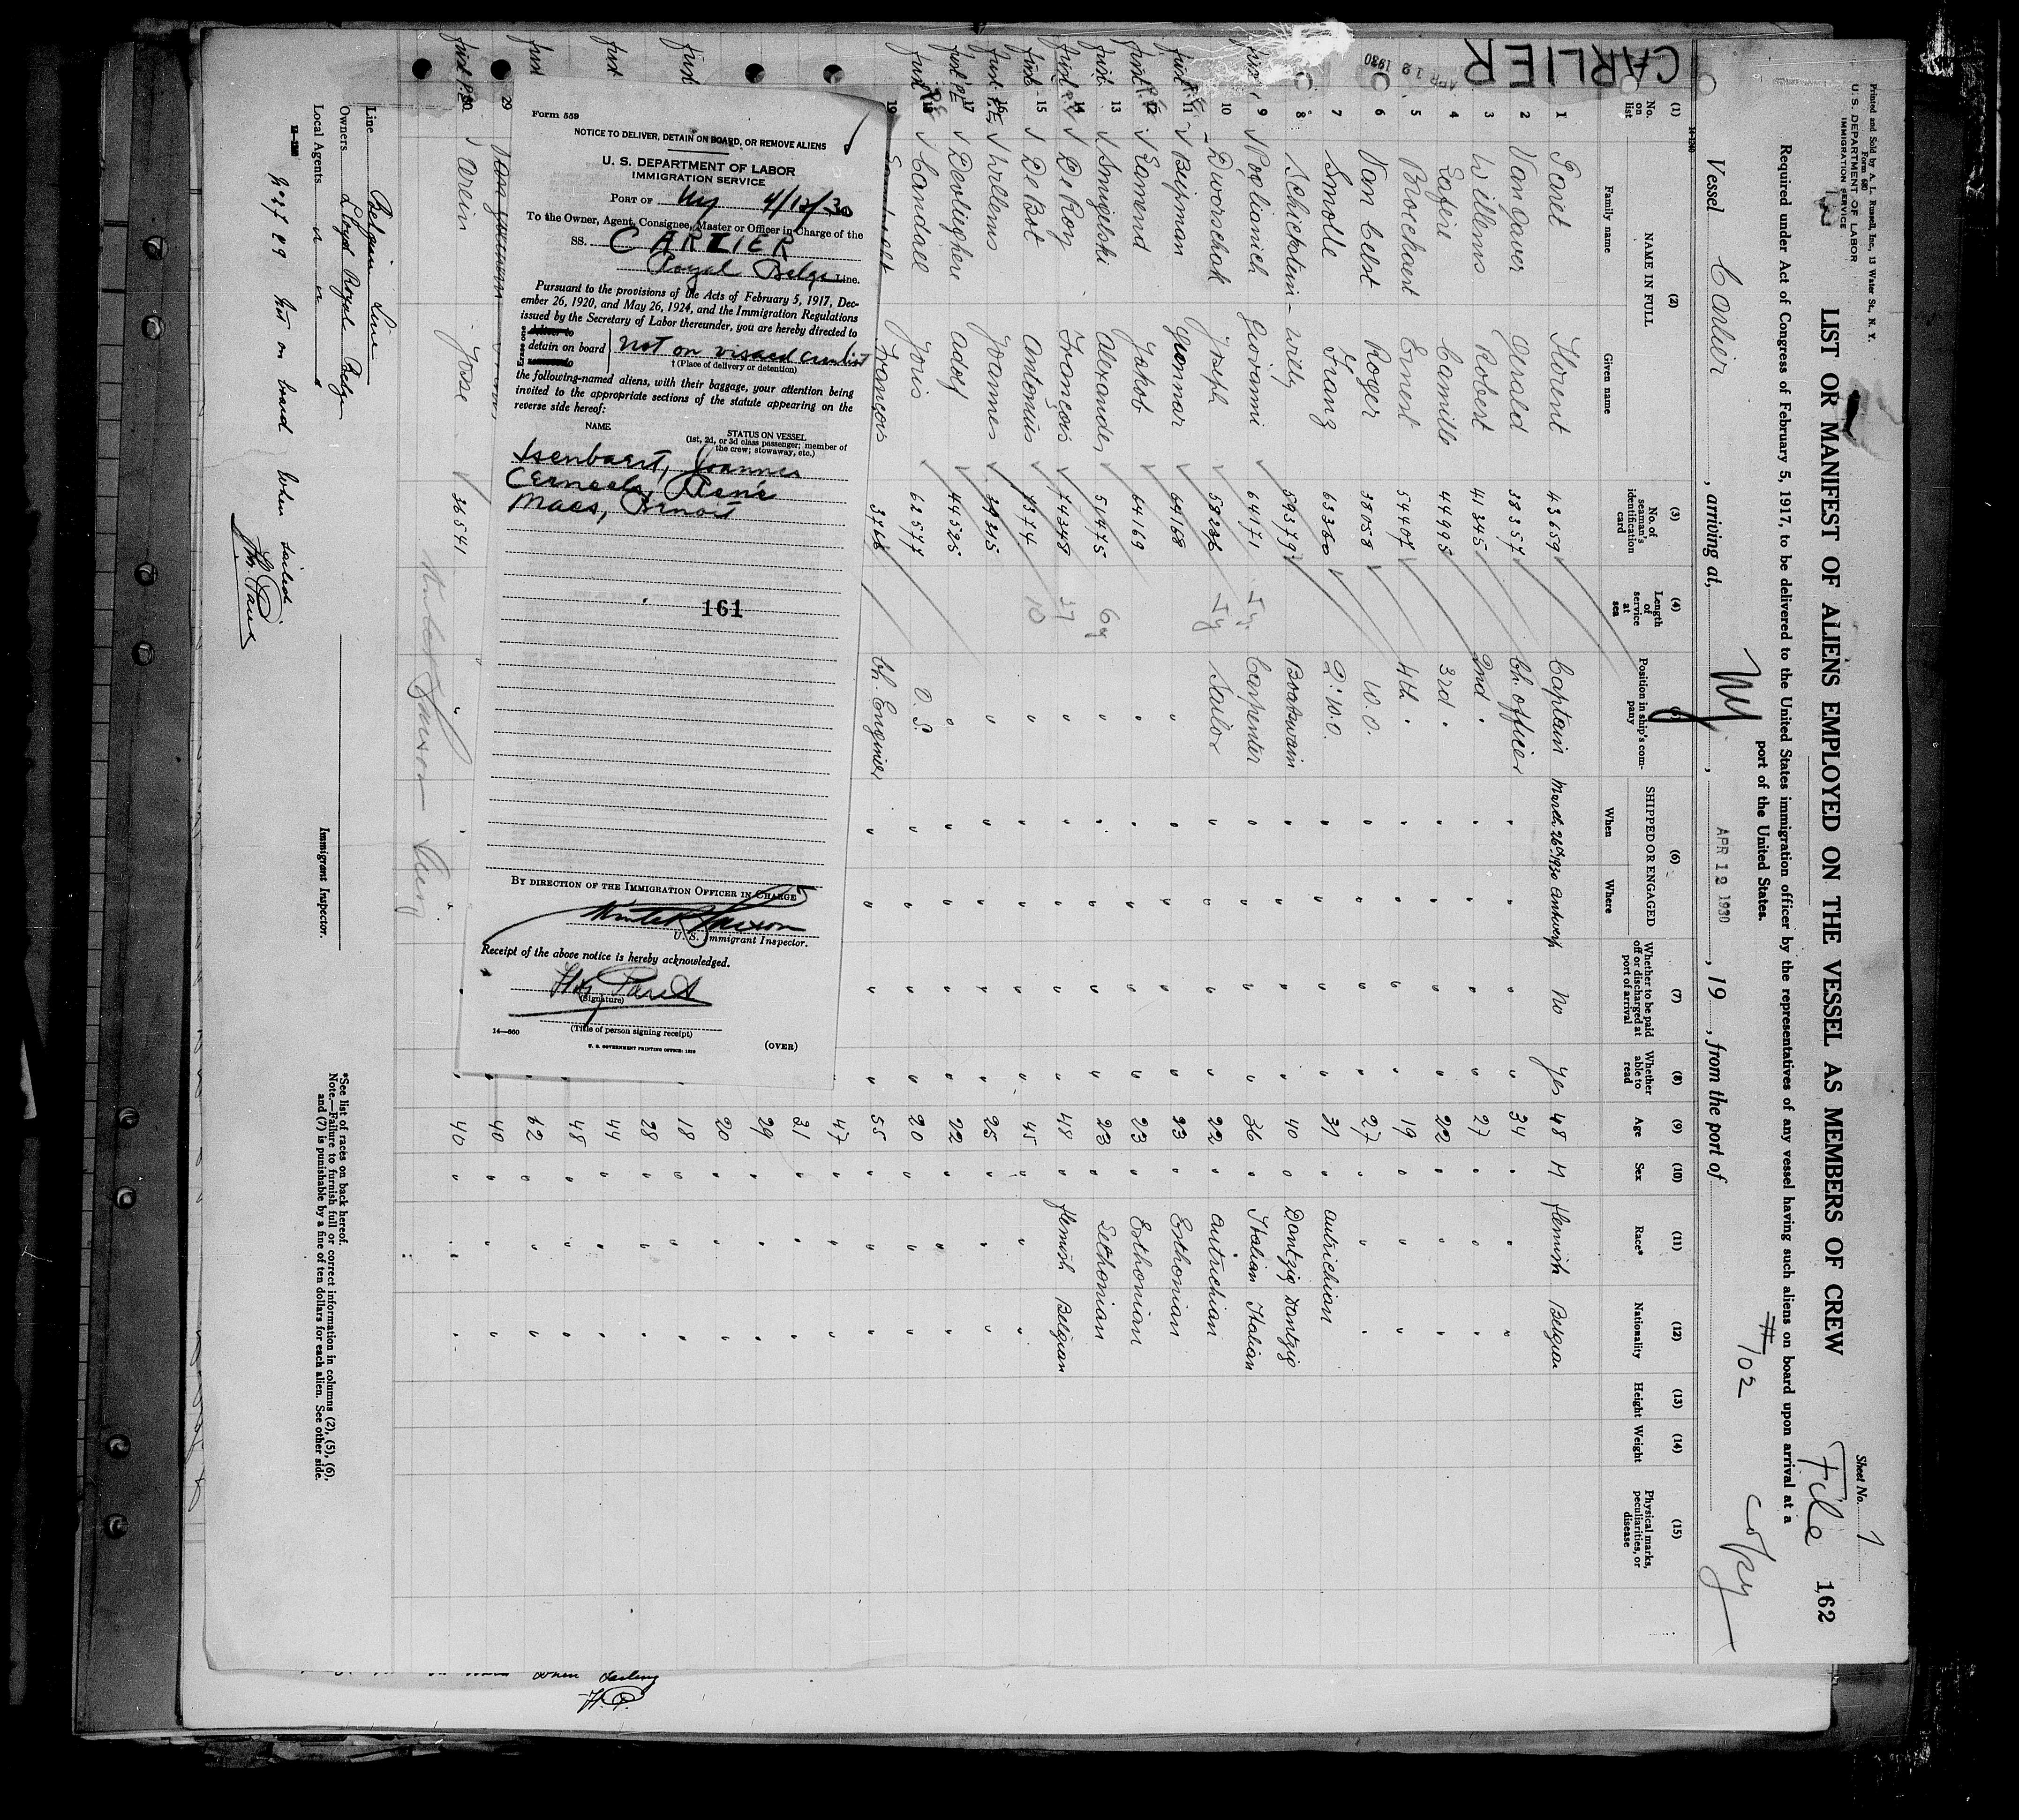 Printed and Sold by A. L. Russell, Inc., 13 Water St., N. Y.
Form 680
U. S. DEPARTMENT OF LABOR
IMMIGRATION SERVICE
Sheet No. 1
LIST OR MANIFEST OF ALIENS EMPLOYED ON THE VESSEL AS MEMBERS OF CREW
File 162
Required under Act of Congress of February 5, 1917, to be delivered to the United States immigration officer by the representatives of any vessel having such aliens on board upon arrival at a
port of the United States.
#102 copy
Vessel Carlier, arriving at, Ny, APR 12 1930, 19, from the port of
CARLIER
APR 12 1930
(1) (2) (3) (4) (5) (6) (7) (8) (9) (10) (11) (12) (13) (14) (15)
No. on list
NAME IN FULL
Family name Given name
No. of seaman's identification card
Length of service at sea
Position in ship's company
SHIPPED OR ENGAGED
When Where
Whether to be paid off or discharged at port of arrival
Whether able to read
Age Sex Race* Nationality Height Weight
Physical marks, peculiarities, or disease
1 Paret Florent 43659 Captain March 26th 1930 Antwerp No yes 48 M flemish Belgian
2 Van Gaver Gerald 38357 Ch. officer " " " " 34 " " "
3 Willems Robert 41345 2nd " " " " " 27 " " "
4 Lafere Camille 44995 3rd " " " " " 22 " " "
5 Broeckaert Ernest 54407 4th " " " " " 19 " " "
6 Van Celst Roger 38058 W.O. " " " " 27 " " "
7 Smolle Franz 65360 2. W.O. " " " " 31 " autrichian
8 Schickstein - Willy 59579 Boatswain " " " " 40 " Dantzig Dantzig
9 Poglianich Giovanni 64171 Carpenter " " " " 36 " Italian Italian
10 Dworschak Joseph 58236 Sailor " " " " 22 " autrichian
11 Buxman 64168 " " " " " 23 " Esthonian
12 Lamend Jakob 64169 " " " " " 23 " Esthonian
13 Smigelski Alexander 51475 6y " " " " " 23 " Lethonian
14 De Roy François 74348 " " " " " 48 " flemish Belgian
15 De Bot Antonius 7374 10 " " " " " 45 " " "
16 Willems Joannes 39215 " " " " " 25 " " "
17 Devlieghere Adolf 44525 " " " " " 22 " " "
18 Candael Joris 62577 O.S. " " " " 20 " " "
19 François 3766 Ch. Engineer " " " " 55 " " "
47 " " "
31 " " "
29 " " "
20 " " "
18 " " "
28 " " "
44 " " "
48 " " "
62 " " "
29 40 " " "
30 Arein Josse 36541 40 " " "
Form 559
NOTICE TO DELIVER, DETAIN ON BOARD, OR REMOVE ALIENS
U. S. DEPARTMENT OF LABOR
IMMIGRATION SERVICE
PORT OF Ny 4/12/30
To the Owner, Agent, Consignee, Master or Officer in Charge of the
SS. CARLIER
Royal Belge Line.
Pursuant to the provisions of the Acts of February 5, 1917, Dec-
ember 26, 1920, and May 26, 1924, and the Immigration Regulations
issued by the Secretary of Labor thereunder, you are hereby directed to
detain on board Not on visaed crewlist
† (Place of delivery or detention)
the following-named aliens, with their baggage, your attention being
invited to the appropriate sections of the statute appearing on the
reverse side hereof:
NAME
STATUS ON VESSEL
(1st, 2d, or 3d class passenger; member of
the crew; stowaway, etc.)
Isenbaert, Joannes
Cerneels, René
Maes, Benoit
161
BY DIRECTION OF THE IMMIGRATION OFFICER IN CHARGE
U. S. Immigrant Inspector.
Receipt of the above notice is hereby acknowledged.
Paret
(Signature)
(Title of person signing receipt)
14—660
U. S. GOVERNMENT PRINTING OFFICE: 1929
(OVER)
Line Belgian Line
Owners Lloyd Royal Belge
Local Agents " " "
Immigrant Inspector.
*See list of races on back hereof.
Note.—Failure to furnish full or correct information in columns (2), (5), (6),
and (7) is punishable by a fine of ten dollars for each alien. See other side.
Not on board when sailed